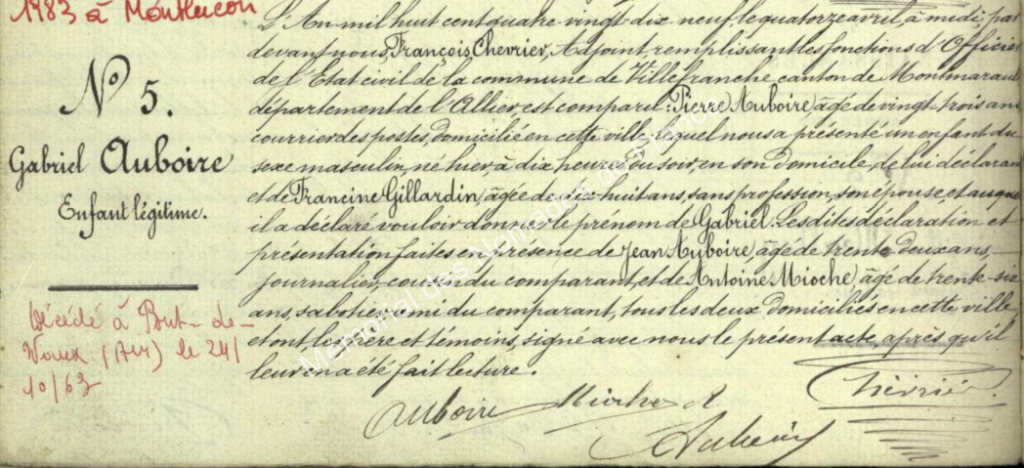 1983 à Montluçon
N° 5.
Gabriel Auboire
Enfant légitime.
Décédé à Port-de-
(Air) le 24/
10/63
L'An mil huit cent quatre vingt dix neuf, le quatorze avril, à midi, par
devant nous, François Chevrier, Adjoint remplissant les fonctions d'Officier
de l'Etat civil de la commune de Villefranche canton de Montmaraud
département de l'Allier, est comparu: Pierre Auboire, âgé de vingt trois ans
courrier des postes, domicilié en cette ville, lequel nous a présenté un enfant du
sexe masculin, né hier, à dix heures du soir, en son domicile, de lui déclarant
et de Francine Gillardin, âgée de dix huit ans, sans profession, son épouse, et auquel
il a déclaré vouloir donner le prénom de Gabriel. Les dites déclaration et
présentation faites en présence de Jean Auboire, âgé de trente deux ans,
journalier, cousin du comparant, et de Antoine Mioche, âgé de trente-six
ans, sabotier, ami du comparant, tous les deux domiciliés en cette ville
et ont les père et témoins, signé avec nous le présent acte, après qu'il
leur en a été fait lecture.
Auboire Mioche A
Auboire
Chevrier